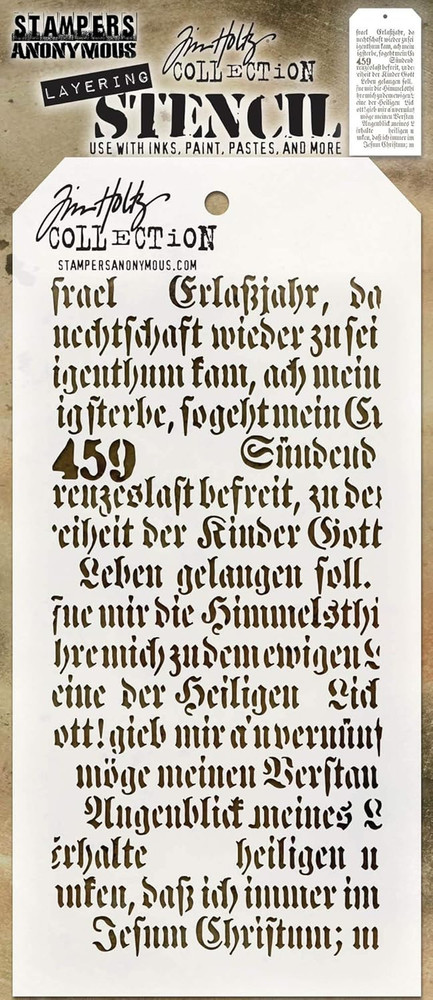 STAMPERS
ANONYMOUS
Tim Holtz
COLLECTION
LAYERING
STENCIL
USE WITH INKS, PAINT, PASTES, AND MORE
Tim Holtz
COLLECTION
STAMPERSANONYMOUS.COM
srael Erlaßjahr, da
nechtſchaft wieder zu ſei
igenthum kam, ach mein
ig ſterbe, ſo geht mein Er
459 Sündend
reuzeslaſt befreit, zu der
reiheit der Kinder Gott
Leben gelangen ſoll.
fne mir die Himmelsthi
hre mich zu dem ewigen L
eine der Heiligen Lid
ott! gieb mir a'n vernünf
möge meinen Verſtan
Augenblick meines L
erhalte heiligen u
nken, daß ich immer im
Jeſum Chriſtum; m